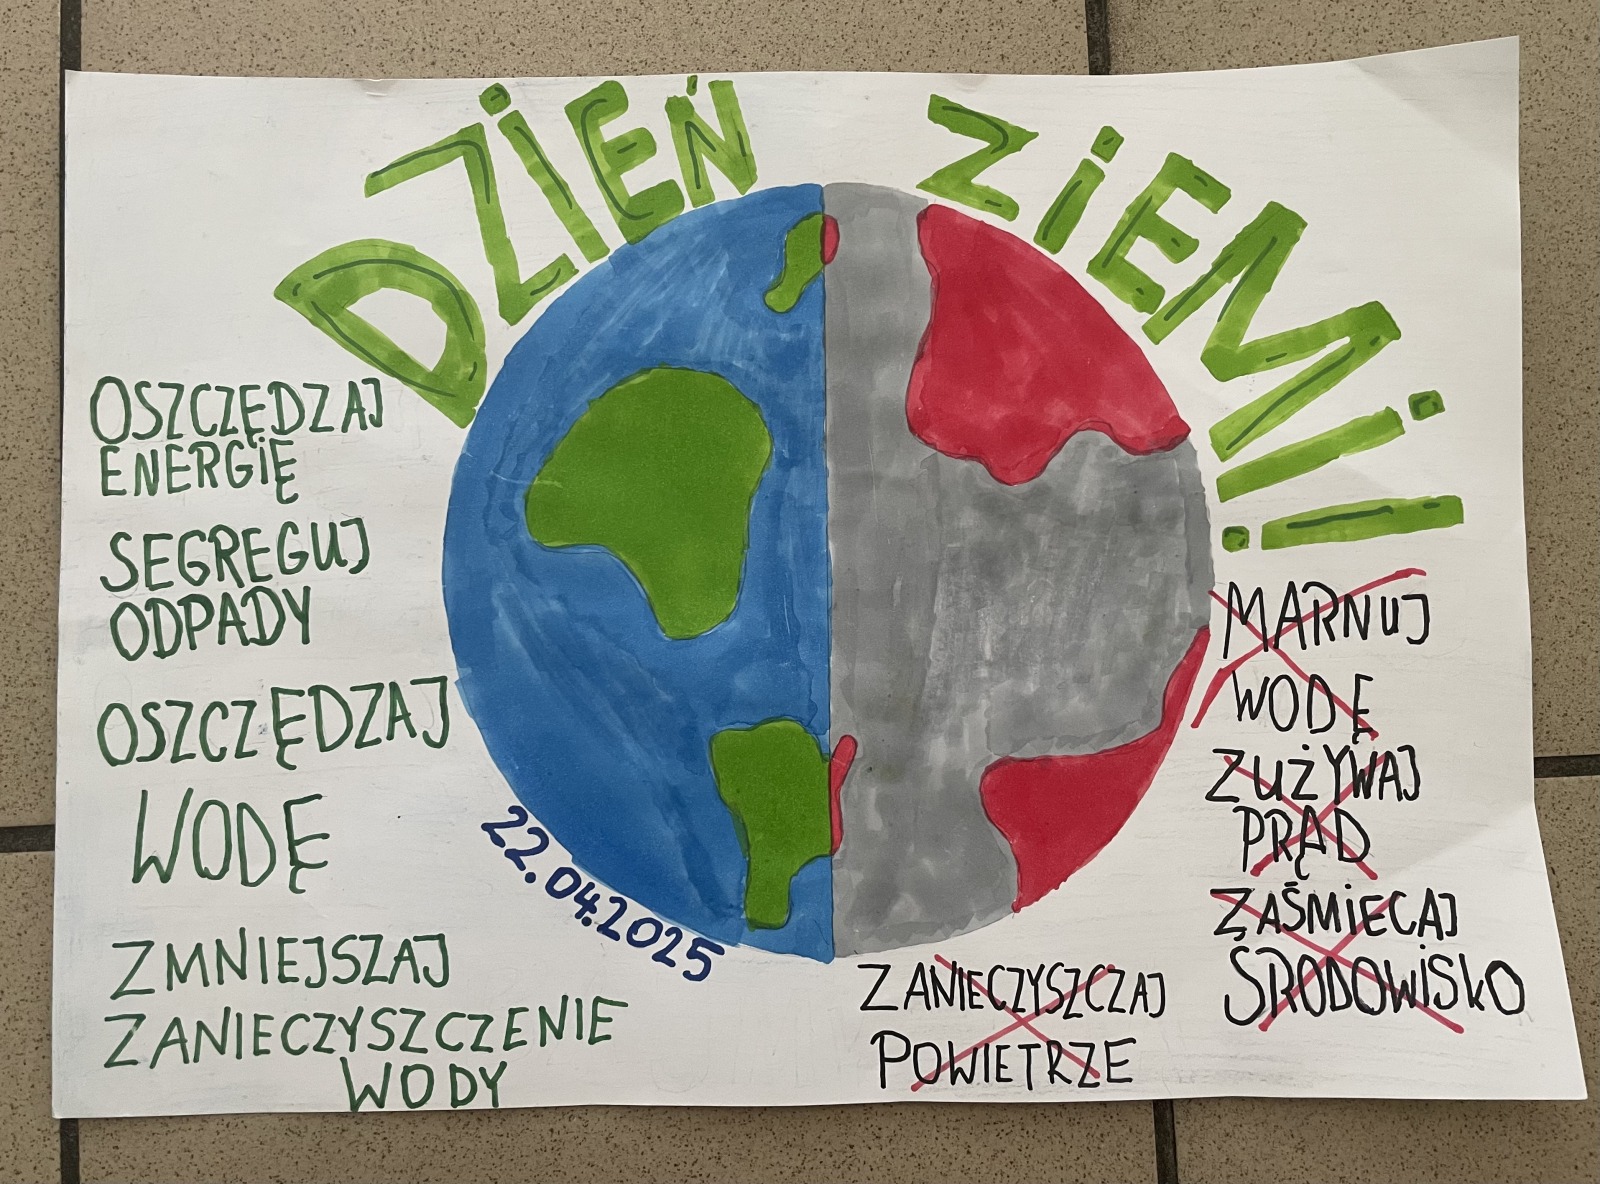 DZIEŃ ZIEMI!
OSZCZĘDZAJ
ENERGIĘ
SEGREGUJ
ODPADY
OSZCZĘDZAJ
WODĘ
ZMNIEJSZAJ
ZANIECZYSZCZENIE
WODY
22.04.2025
MARNUJ
WODĘ
ZUŻYWAJ
PRĄD
ZAŚMIECAJ
ŚRODOWISKO
ZANIECZYSZCZAJ
POWIETRZE